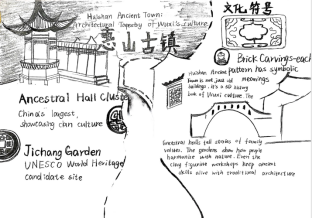 Huishan Ancient Town:
Architectural Tapestry of Wuxi's Culture
惠山古镇
文化符号
Ancestral Hall Cluster
China's largest,
showcasing clan culture
Jichang Garden
UNESCO World Heritage
candidate site
Brick Carvings-each
pattern has symbolic
meanings
Huishan Ancient
Town is not just old
buildings, it's a
book of Wuxi culture. The
ancestral halls tell stories of family
values. The gardens show how people
harmonize with nature. Even the
clay figurine workshops keep ancient
skills alive with traditional architecture